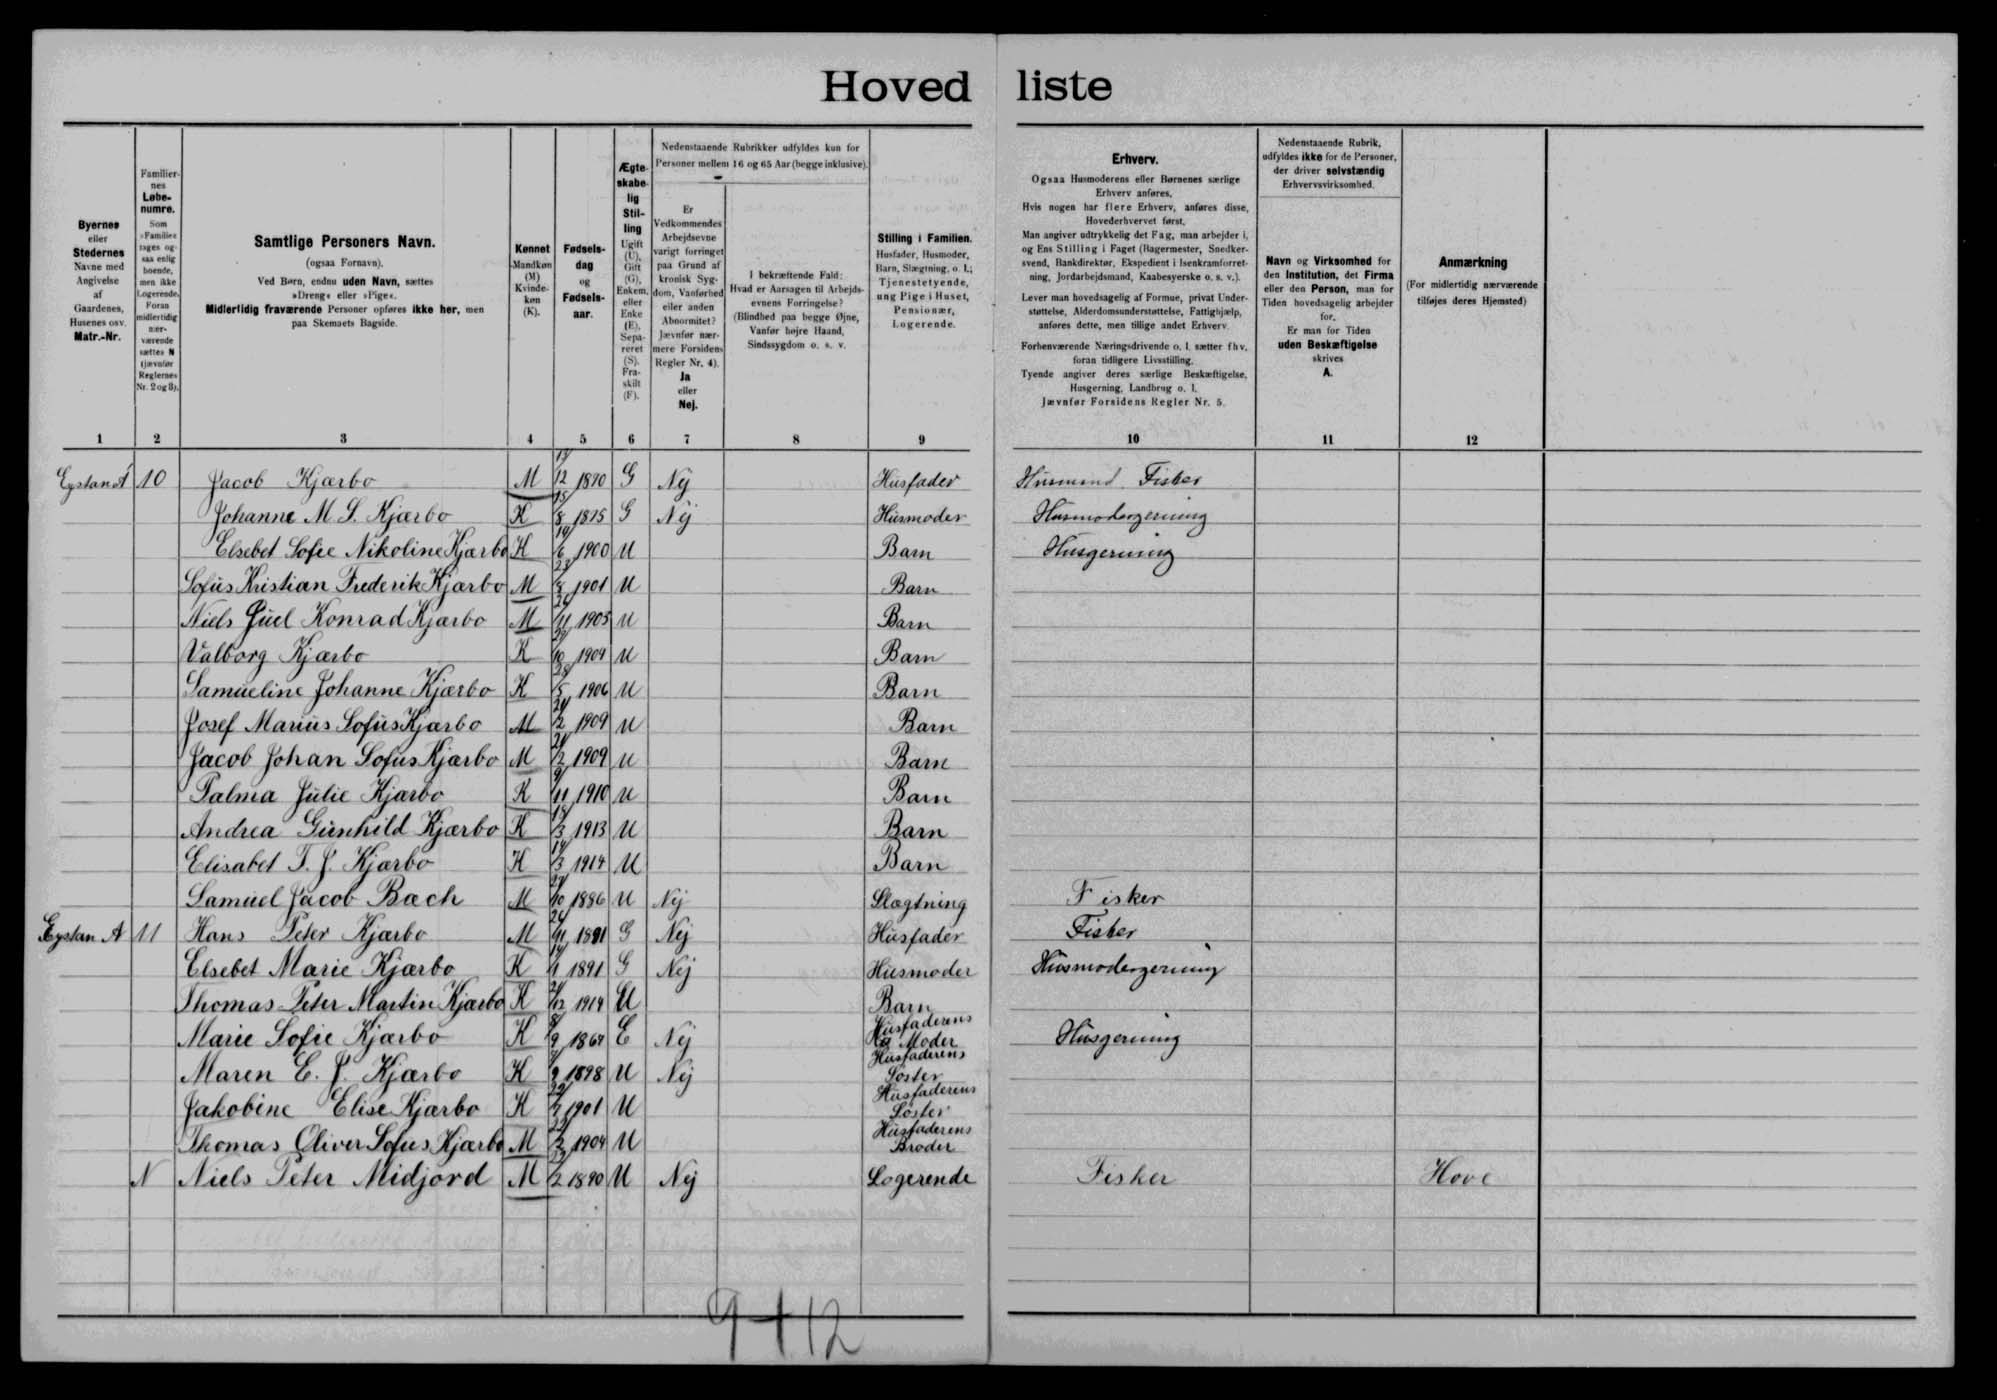 Hoved liste
Byernes
eller
Stedernes
Navne med
Angivelse
af
Gaardenes,
Husenes osv.
Matr.-Nr.
Familier-
nes
Løbe-
numre.
Som
»Familie«
tages og-
saa enlig
boende,
men ikke
Logerende.
Foran
midlertidig
nær-
værende
sættes N
(jævnfør
Reglernes
Nr. 2 og 3).
Samtlige Personers Navn.
(ogsaa Fornavn).
Ved Børn, endnu uden Navn, sættes
»Dreng« eller »Pige«.
Midlertidig fraværende Personer opføres ikke her, men
paa Skemaets Bagside.
Kønnet
Mandkøn
(M)
Kvinde-
køn
(K).
Fødsels-
dag
og
Fødsels-
aar.
Ægte-
skabe-
lig
Stil-
ling
Ugift
(U),
Gift
(G),
Enkem.
eller
Enke
(E),
Sepa-
reret
(S).
Fra-
skilt
(F).
Nedenstaaende Rubrikker udfyldes kun for
Personer mellem 16 og 65 Aar (begge inklusive).
Er
Vedkommendes
Arbejdsevne
varigt forringet
paa Grund af
kronisk Syg-
dom, Vanførhed
eller anden
Abnormitet?
Jævnfør nær-
mere Forsidens
Regler Nr. 4).
Ja
eller
Nej.
I bekræftende Fald:
Hvad er Aarsagen til Arbejds-
evnens Forringelse?
(Blindhed paa begge Øjne,
Vanfør højre Haand,
Sindssygdom o. s. v.
Stilling i Familien.
Husfader, Husmoder,
Barn, Slægtning, o. l.;
Tjenestetyende,
ung Pige i Huset,
Pensionær,
Logerende.
Erhverv.
Ogsaa Husmoderens eller Børnenes særlige
Erhverv anføres.
Hvis nogen har flere Erhverv, anføres disse,
Hovederhvervet først.
Man angiver udtrykkelig det Fag, man arbejder i,
og Ens Stilling i Faget (Bagermester, Snedker-
svend, Bankdirektør, Ekspedient i Isenkramforret-
ning, Jordarbejdsmand, Kaabesyerske o. s. v.).
Lever man hovedsagelig af Formue, privat Under-
støttelse, Alderdomsunderstøttelse, Fattighjælp,
anføres dette, men tillige andet Erhverv.
Forhenværende Næringsdrivende o. l. sætter fhv.
foran tidligere Livsstilling.
Tyende angiver deres særlige Beskæftigelse,
Husgerning, Landbrug o. l.
Jævnfør Forsidens Regler Nr. 5.
Nedenstaaende Rubrik,
udfyldes ikke for de Personer,
der driver selvstændig
Erhvervsvirksomhed.
Navn og Virksomhed for
den Institution, det Firma
eller den Person, man for
Tiden hovedsagelig arbejder
for.
Er man for Tiden
uden Beskæftigelse
skrives
A.
Anmærkning
(For midlertidig nærværende
tilføjes deres Hjemsted)
1 2 3 4 5 6 7 8 9 10 11 12
Eystan Á 10 Jacob Kjærbo M 12 1870 G Nej Husfader Husmand Fisker
Johanne M. S. Kjærbo K 15/8 1875 G Nej Husmoder Husmodergerning
Elsebet Sofie Nikoline Kjærbo K 6 1900 U Barn Husgerning
Sofus Kristian Frederik Kjærbo M 23/8 1901 U Barn
Niels Juel Konrad Kjærbo M 11 1903 U Barn
Valborg Kjærbo K 10 1904 U Barn
Samueline Johanne Kjærbo K 28/5 1906 U Barn
Josef Marius Sofus Kjærbo M 21/2 1909 U Barn
Jacob Johan Sofus Kjærbo M 21/2 1909 U Barn
Palma Julie Kjærbo K 9/11 1910 U Barn
Andrea Gunhild Kjærbo K 3 1913 U Barn
Elisabet T. J. Kjærbo K 3 1914 U Barn
Samuel Jacob Bæch M 10 1886 U Nej Slægtning Fisker
Eystan Á 11 Hans Peter Kjærbo M 11 1891 G Nej Husfader Fisker
Elsebet Marie Kjærbo K 1 1891 G Nej Husmoder Husmodergerning
Thomas Peter Martin Kjærbo K 12 1914 U Barn
Marie Sofie Kjærbo K 8/9 1864 E Nej Husfaderens Moder Husgerning
Maren E. J. Kjærbo K 9 1898 U Nej Husfaderens Søster
Jakobine Elise Kjærbo K 1901 U Husfaderens Søster
Thomas Oliver Sofus Kjærbo M 1904 U Husfaderens Broder
N Niels Peter Midjord M 2 1890 U Nej Logerende Fisker Hove
9+12